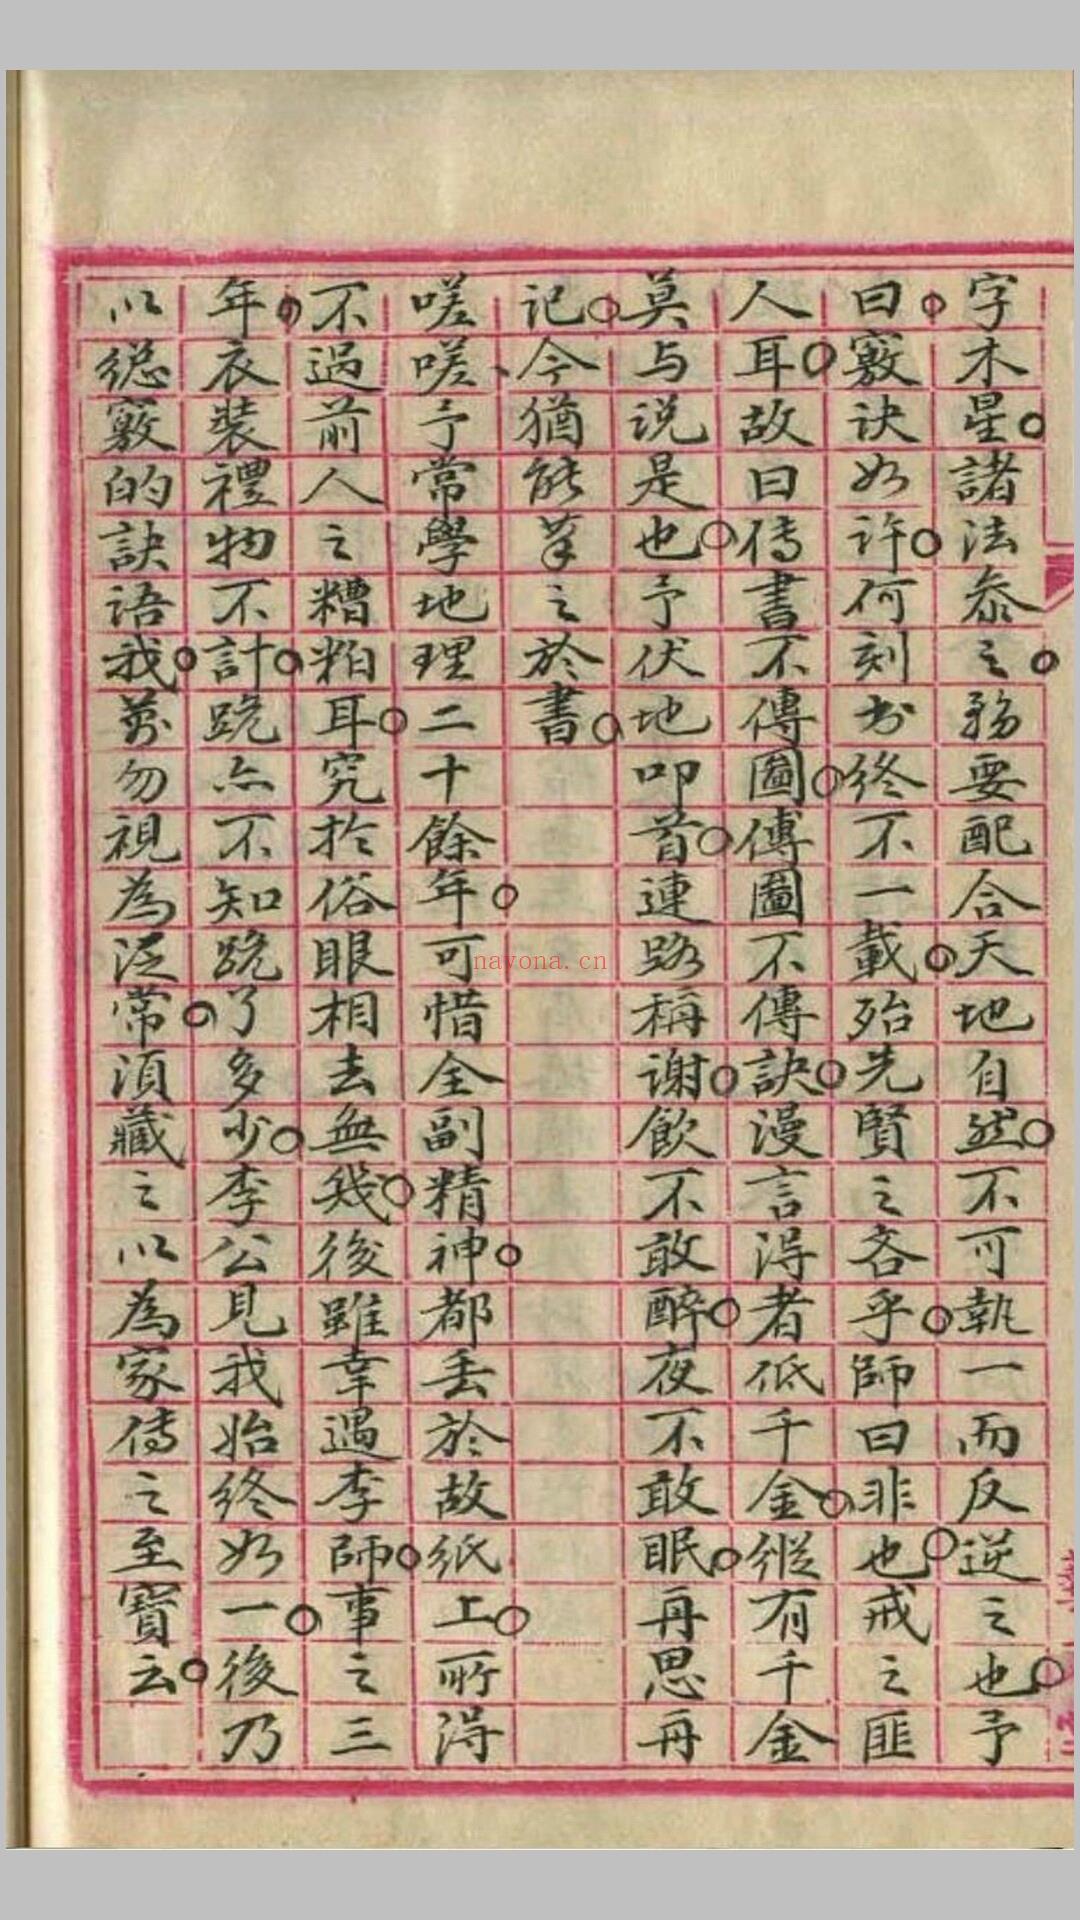 字木星諸法叅之務要配合天地自然不可執一而反逆之也予
曰竅訣如許何刻書終不一載殆先賢之吝乎師曰非也戒之匪
人耳故曰傳書不傳圖傳圖不傳訣漫言得者低千金縱有千金
莫与説是也予伏地叩首連路稱謝飲不敢醉夜不敢眠再思再
记今猶能筆之於書
嗟嗟予常學地理二十餘年可惜全副精神都丢於故紙上所得
不過前人之糟粕耳究於俗眼相去無幾後雖幸遇李師事之三
年衣裝禮物不計跪亦不知跪了多少李公見我始終如一後乃
以總竅的訣语我萬勿視為泛常須藏之以為家傳之至寶云
nayona.cn